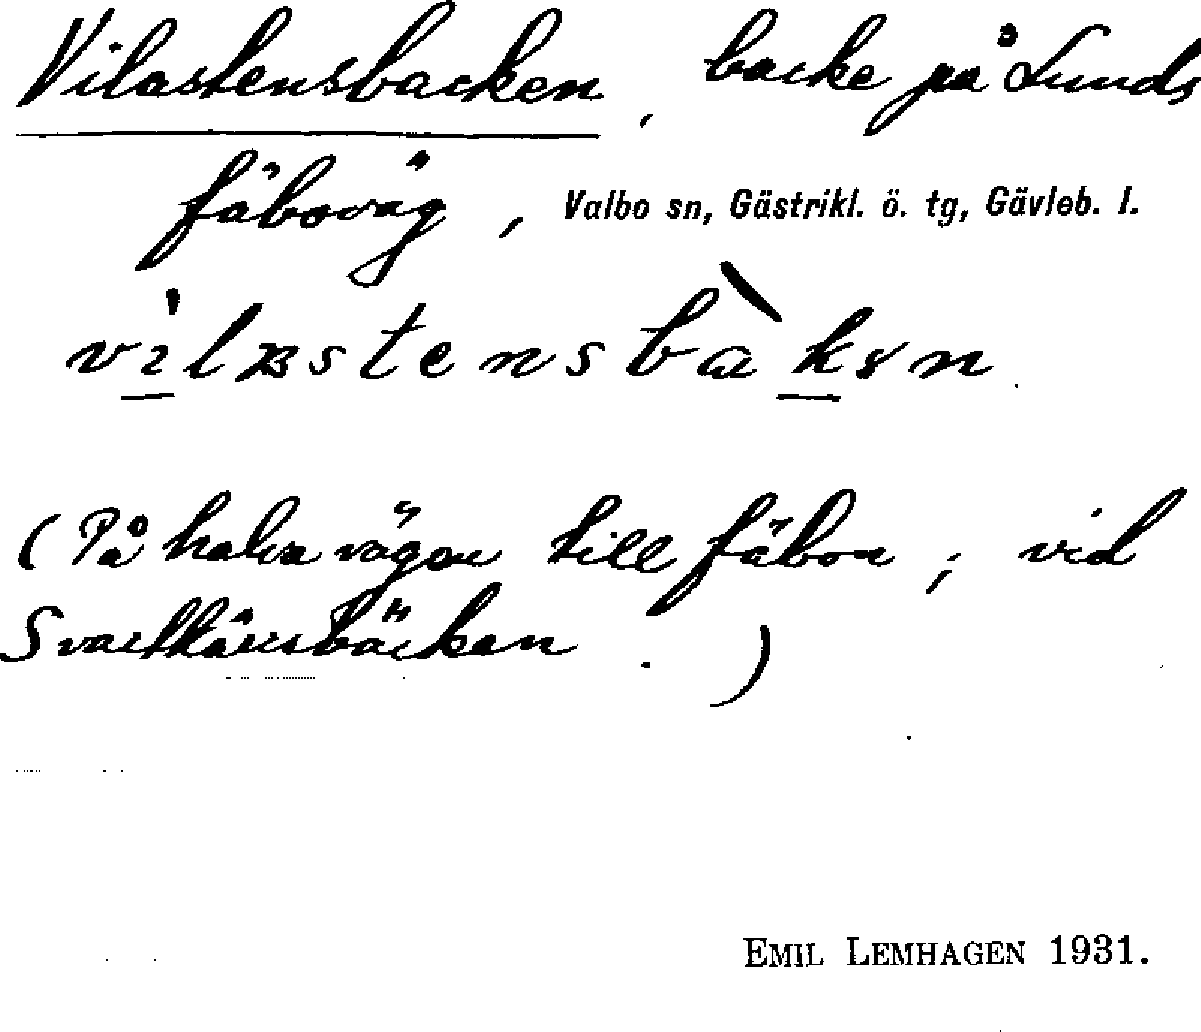 Vilastensbacken, backe på Lunds
fäboväg, Valbo sn, Gästrikl. ö. tg, Gävleb. l.
(På halva vägen till fäbon, vid
Svarttärnsbäcken.)
EMIL LEMHAGEN 1931.